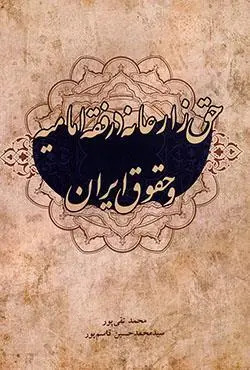 حق زارعانه در فقه امامیه
و حقوق ایران
محمد تقی پور
سیدمحمدحسین قاسم پور